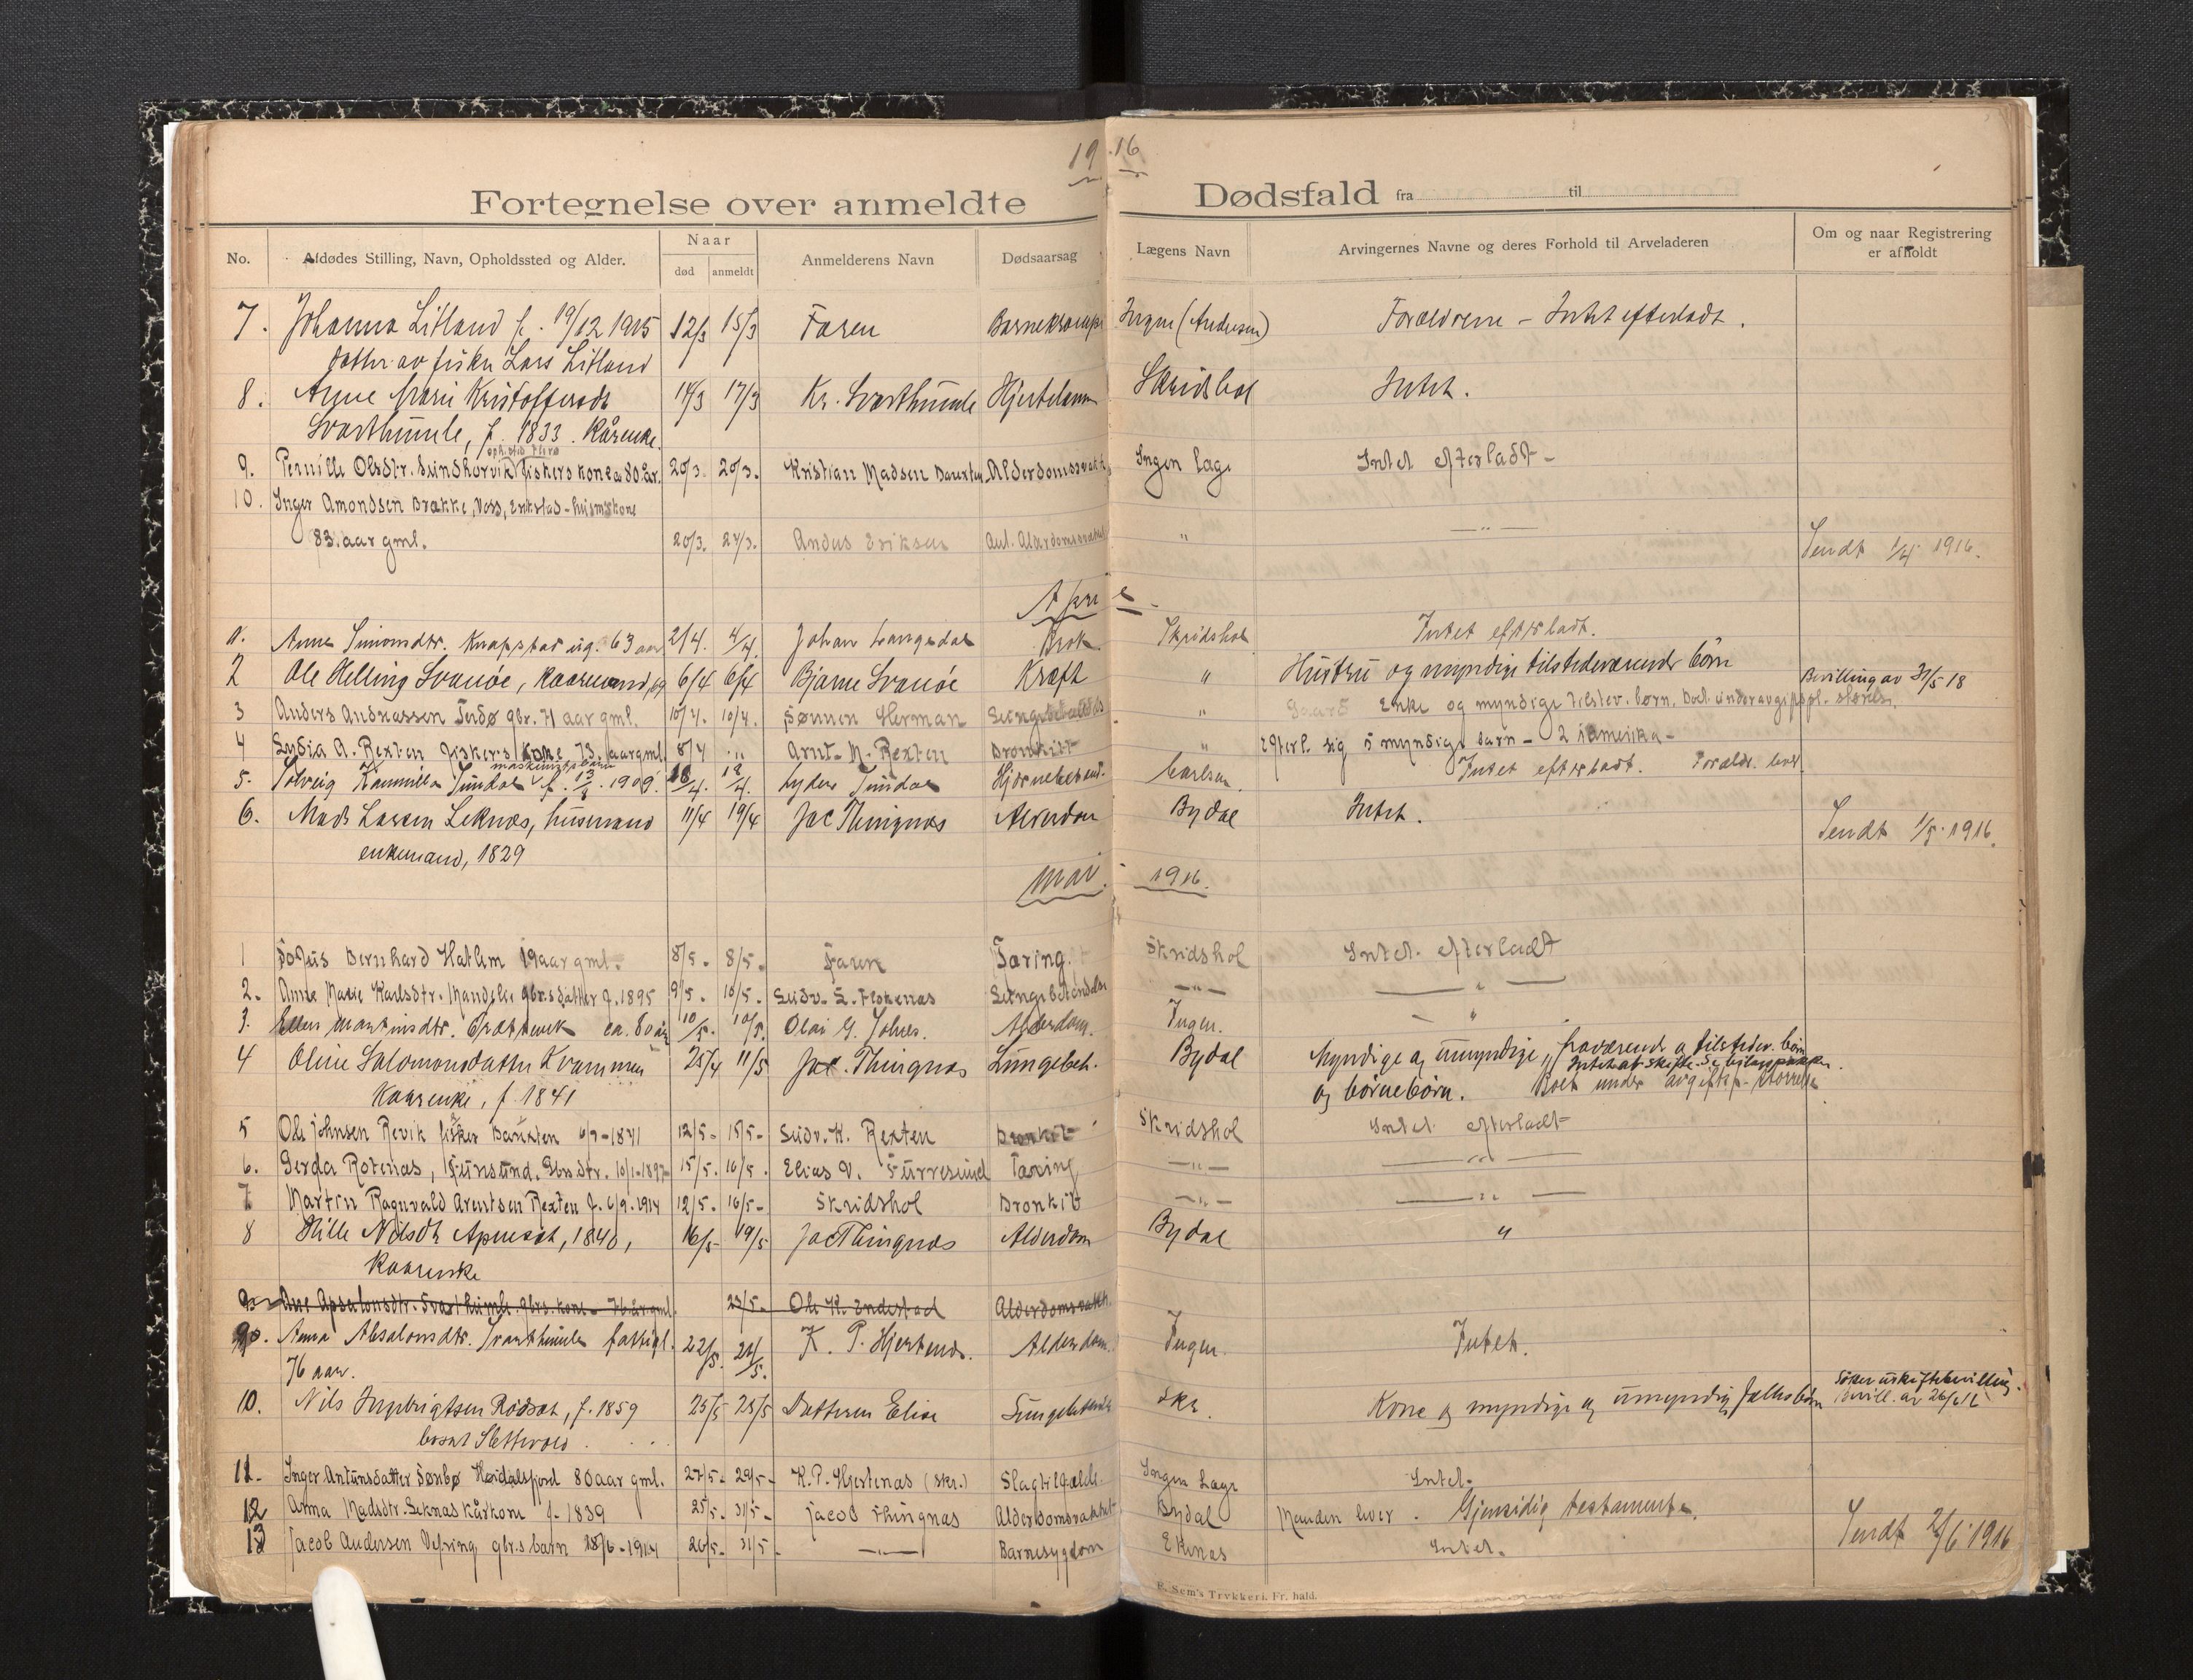 19 16
Fortegnelse over anmeldte Dødsfald fra til
No. Afdødes Stilling, Navn, Opholdssted og Alder. Naar død anmeldt Anmelderens Navn Dødsaarsag Lægens Navn Arvingernes Navne og deres Forhold til Arveladeren Om og naar Registrering er afholdt
7. Johanna Litland f. 19/12 1915 12/3 15/3 Faren Barnekrampe Ingen (Andersen) Forældrene - Intet efterladt.
datter av fisker Lars Litland
8. Anne Marie Kristoffersdt 14/3 17/3 Kr. Svarthumle Hjertelam Skridshol Intet.
Svarthumle, f. 1833. Kårenke.
9. Pernille Olsdtr. fiskers kone 80 år. 20/3 20/3. Kristian Madsen Alderdomssvakh Ingen læge Intet efterladt -
10. Inger Amondsen Brække, Vass, Erikstad - husm.kone
83 aar gml. 20/3. 24/3. Andus Eriksen Ant. Alderdomssvakhet " —"— Sendt 1/4 1916.
April
11. Anna Simonsdtr. Knapstad ug. 63 aar 2/4. 4/4. Johan Langedal Brok Skridshol Intet efterladt.
2 Ole Helling Svanøe, Kaarmand, 6/4 6/4 Bjarne Svanøe Kræft " Hustru og myndige tilstedeværende børn Bevilling av 31/5 18
3 Anders Andreassen gbr. 71 aar gml. 10/4. 10/4. Sønnen Herman " Enke og myndige tilstev. børn. Boet under avgiftspl. størrelse.
4 Lydia A. Rexten fiskers kone 73 aar gml. 8/4 " Arnt M. Rexten Bronkitt " Efterl. sig 5 myndige barn - 2 i Amerika -
maskinistbarn
5. Solveig Kamilla Sundal f. 13/8 1909. 18/4. 18/4. Lyder Sundal Hjernebetend. Carlsen. Intet efterladt. Foræld. lever
6. Mads Larsen Leknæs, husmand 11/4 19/4 Jac Thingnæs Alderdom Bydal Intet. Sendt 1/5 1916.
enkemand, 1829
Mai. 1916.
1 Sofus Bernhard Hatlem 19 aar gml. 8/5. 8/5. Faren Tæring. Skridshol Intet efterladt
2. Anne Marie Karlsdtr. gbrs datter f. 1895 9/5. 10/5. Ludv. Lungebetændelse —"— —"—
3. Ellen Martinsdtr. ca. 80 aar 10/5. 10/5. Olai G. Alderdom. Ingen. "
4 Oline Salomonsdatter Kvammen 25/4 11/5 Jac. Thingnæs Lungebet. Bydal Myndige og umyndige, fraværende og tilstedev. børn
Kaarenke, f. 1841 og børnebørn. Boet under avgiftsp. størrelse
5 Ole Johnsen Revik fisker 6/9-1841 12/5- 15/5- Ludv. K. Rexten Bronkit Skridshol Intet efterladt
6. Gerda Rotenæs, Furusund. Gbrs dtr. 10/1-1897 15/5. 16/5. Elias V. Furresund Tæring —"— —"—
7 Martin Ragnvald Arentsen Rexten f. 6/9.1914 12/5. 16/5- Skridshol Bronkit —"— —"—
8 Hille Nilsdtr Apneset, 1840, 16/5 19/5 Jac Thingnæs Alderdom Bydal "
Kaarenke
9. Ane Apselonsdtr. Svarthumle gbrs. kone - 76 år gml. 23/5- Ole K. Endestad Alderdomsvakh.
9. Anna Absalonsdtr. Svarthumle fattigl. 22/5. 24/5. K. P. Hjertenæs. Alderdom. Ingen. Intet.
76 aar.
10. Nils Ingebrigtsen Rødset, f. 1859 25/5 25/5 Datteren Elise Lungebetænd Skr. Kone og myndige og umyndig fællesbørn Søker uskiftebevilling. Bevill. av 26/6 16
bosat Slettevold.
11. Inger Antunsdatter Sønbø Høidalsfjord 80 aar gml. 27/5- 29/5- K. P. Hjertenæs (Skr.) Slagtilfælde. Ingen Læge Intet.
12 Anna Madsdtr. Leknæs kårkone f. 1839 25/5. 31/5- Jacob Thingnæs Alderdomsvakhet Bydal Manden lever. Gjensidig testamente.
13 Jacob Andersen Vefring gbrs. barn 18/6-1914 26/5- 31/5- —"— Barnesygdom Ekenæs Intet. Sendt 2/6 1916
E. Sem's Trykkeri, Fr. hald.